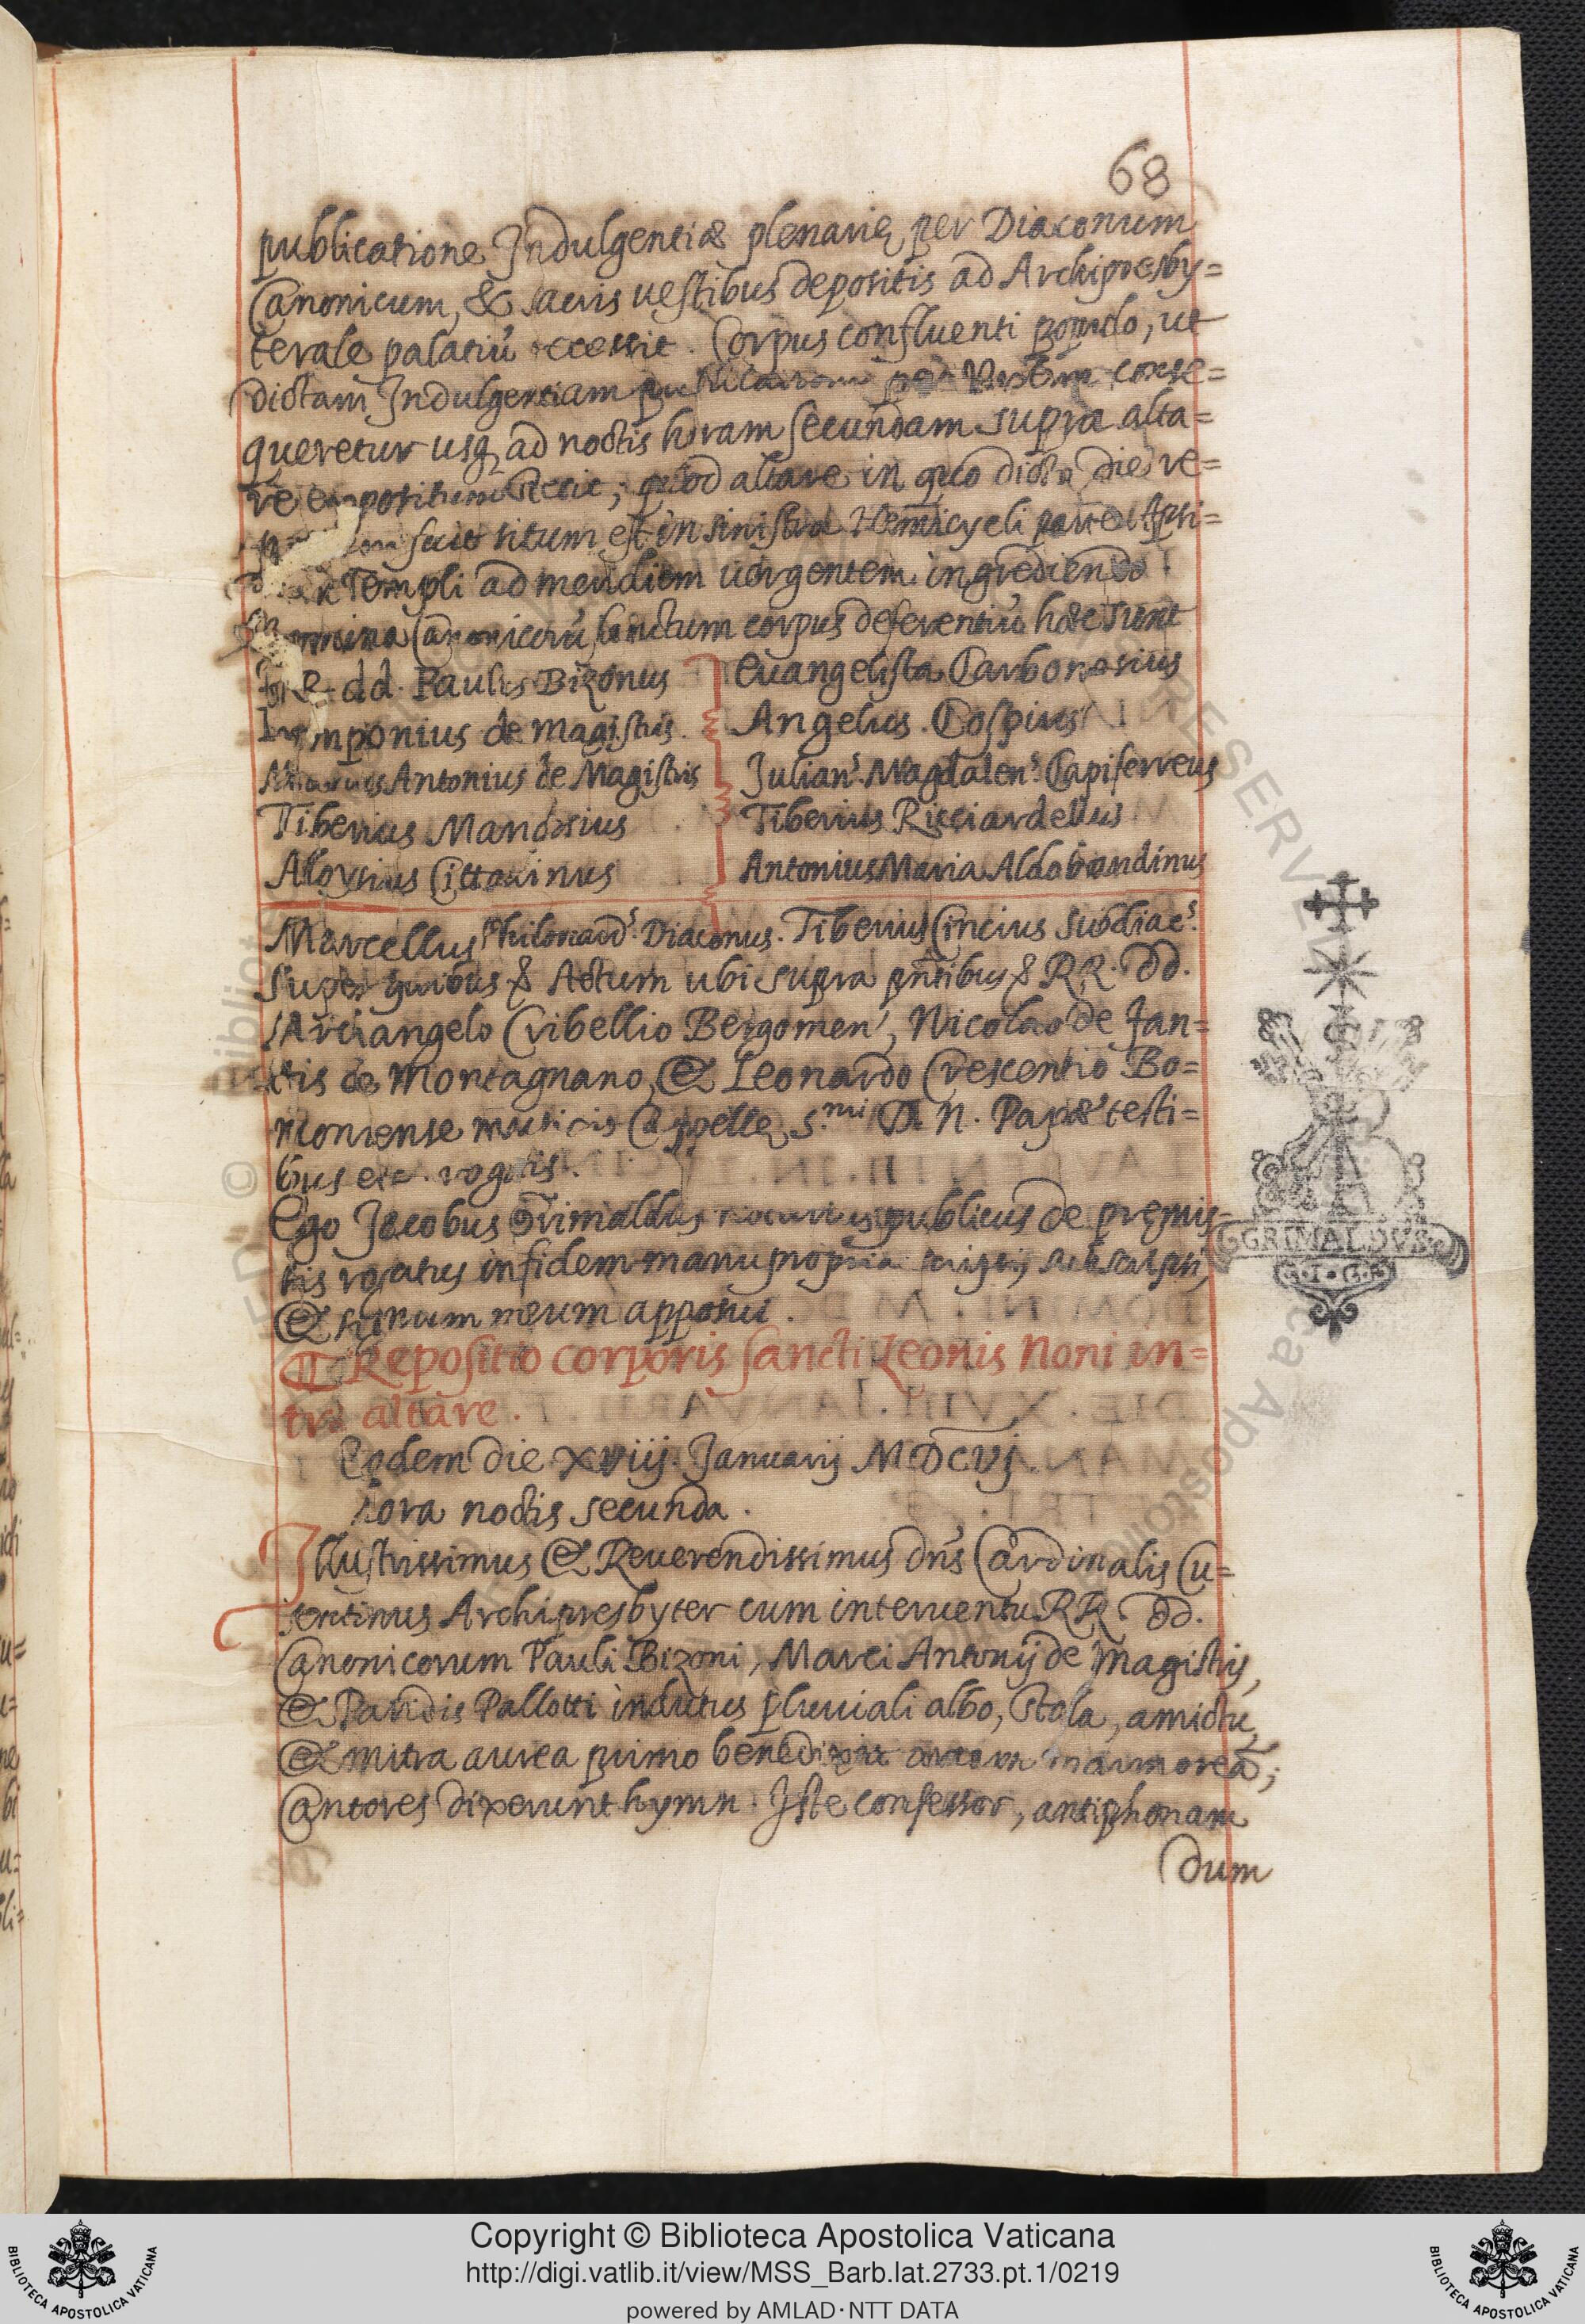 68
publicatione Indulgentiæ plenarię per Diaconum
Canonicum, & sacris uestibus depositis ad Archipresby=
terale palatiũ secessit. Corpus confluenti populo, ut
dictam Indulgentiam conse=
queretur usq ad noctis horam secundam supra alta=
re expositum stetit; quod altare in quo dicta die re=
fuit situm est in sinistra Hemicycli parte Apsi=
Templi ad meridiem uergentem ingrediendo.
Canonicorũ sanctum corpus deferentiũ hæc sunt
dd. Paulus Bizonus
Euangelista Carbonesius
Pomponius de Magistris.
Angelus Cospius
Marcus Antonius de Magistris
Julian.s Magdalen.s Capiferreus
Tiberius Mandosius
Tiberius Ricciardellus
Aloysius Cittadinus
Antonius Maria Aldobrandinus
Marcellus Philonard.s Diaconus. Tiberius Cincius Subdiac.s
Super quibus & Actum ubi supra pñtibus & RR. dd.
Archangelo Cribellio Bergomen', Nicolao de Fan=
tis de Montagnano, & Leonardo Crescentio Bo=
noniense musicis Cappellę S.mi D. N. Papæ testi=
bus etc. rogatis.
Ego Jacobus Grimaldus notarius publicus de pręmis=
sis rogatus in fidem manu propria scripsi, subscripsi,
& signum meum apposui.
GRIMALDVS
Repositio corporis sancti Leonis Noni in=
tra altare.
Eodem die xviij. Januarij MDCVJ.
hora noctis secunda.
Illustrissimus & Reuerendissimus dñs Cardinalis Cu=
sentinus Archipresbyter cum interuentu RR. dd.
Canonicorum Pauli Bizoni, Marci Antonij de Magistris,
& Paridis Pallotti indutus pluuiali albo, stola, amictu,
& mitra aurea primo benedixit arcam marmoreã;
Cantores dixerunt hymn. Iste confessor, antiphonam
dum
Copyright © Biblioteca Apostolica Vaticana
http://digi.vatlib.it/view/MSS_Barb.lat.2733.pt.1/0219
powered by AMLAD·NTT DATA
BIBLIOTECA APOSTOLICA VATICANA
BIBLIOTECA APOSTOLICA VATICANA